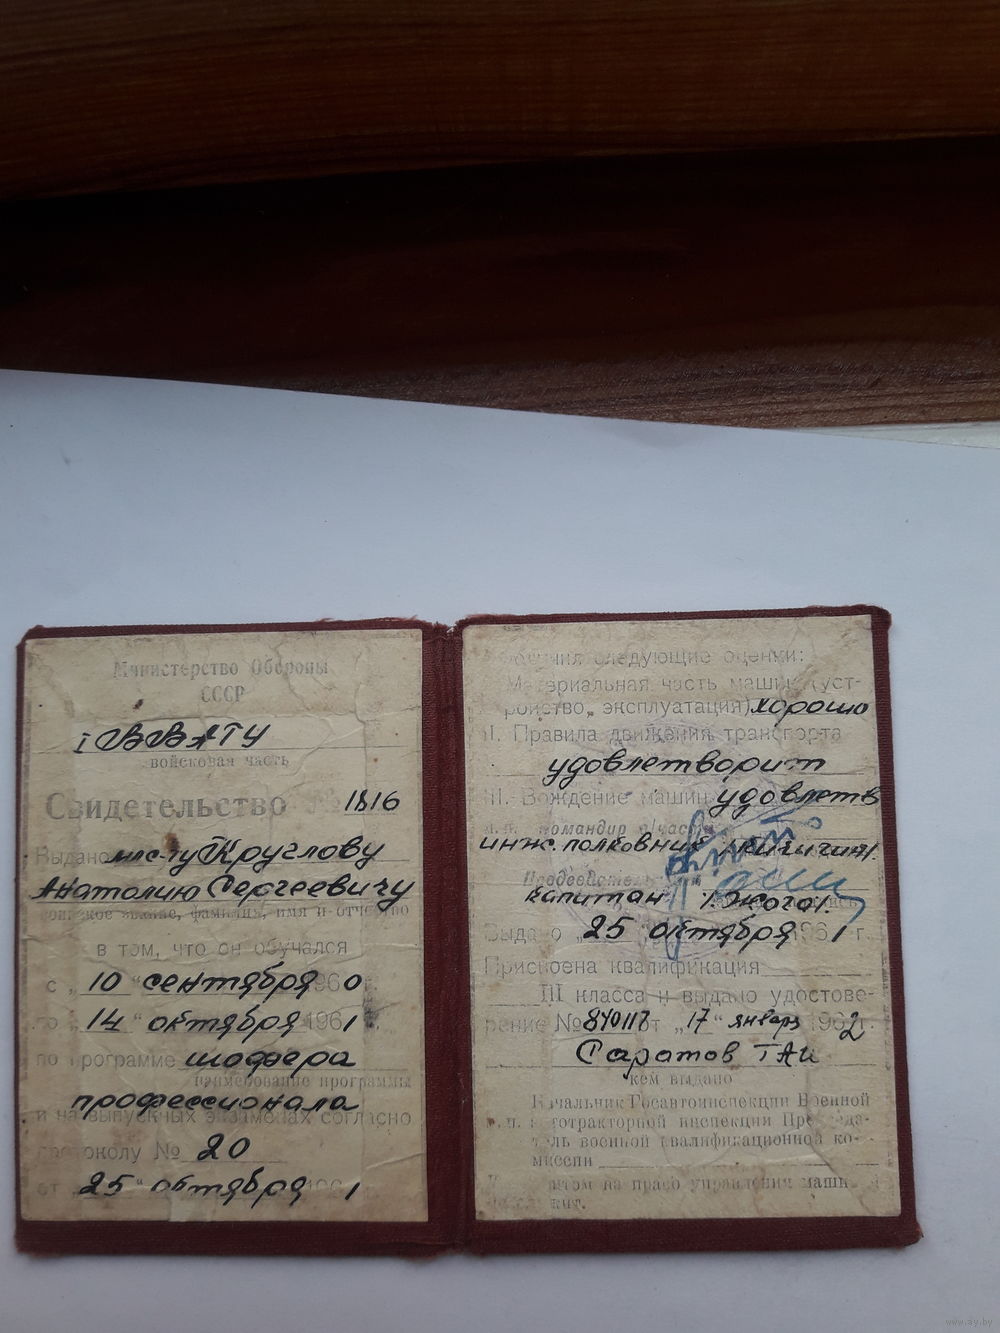 Министерство Обороны
СССР
I ВВАТУ
войсковая часть
Свидетельство № 1816
Выдано мл с-ту Круглову
Анатолию Сергеевичу
воинское звание, фамилия, имя и отчество
в том, что он обучался
с „10“ сентября 1960
по „14“ октября 1961 г.
по программе шофера
наименование программы
профессионала
и на выпускных экзаменах согласно
протоколу № 20
от „25“ октября 1961
следующие оценки:
Материальная часть машин (уст-
ройство, эксплуатация) хорошо
II. Правила движения транспорта
удовлетворит
III. Вождение машин удовлетв
м.п. Командир в/части
инж. полковник
капитан
Выдано „25 октября 1961 г.
Присвоена квалификация
III класса и выдано удостове-
рение № от „17“ января 1962 г.
Саратов ГАИ
кем выдано
Начальник Госавтоинспекции Военной
м.п. автотракторной инспекции Председа-
тель военной квалификационной ко-
миссии
на право управления машиной
www.ay.by